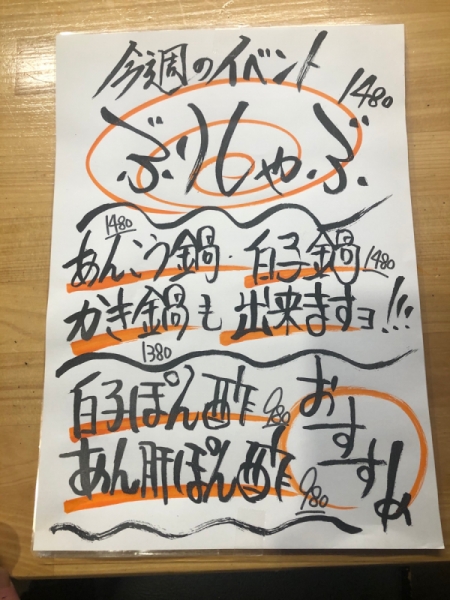 今週のイベント
ぶりしゃぶ 1480
あんこう鍋 1480・白子鍋 1480
かき鍋も 1380 出来ますョ!!!
白子ぽん酢 980
あん肝ぽん酢 980
おすすめ